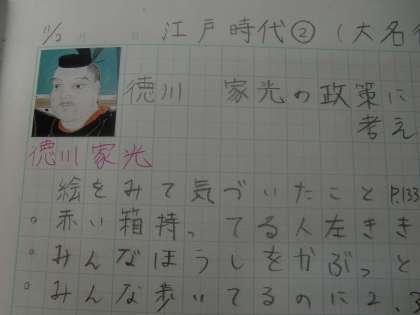 11/2 江戸時代② (大名行
徳川 家光の政策に
考え
徳川家光
絵をみて気づいたこと P.133
。赤い箱持ってる人左きき
。みんなほうしをかぶっと
。みんな歩いてるのに2,3